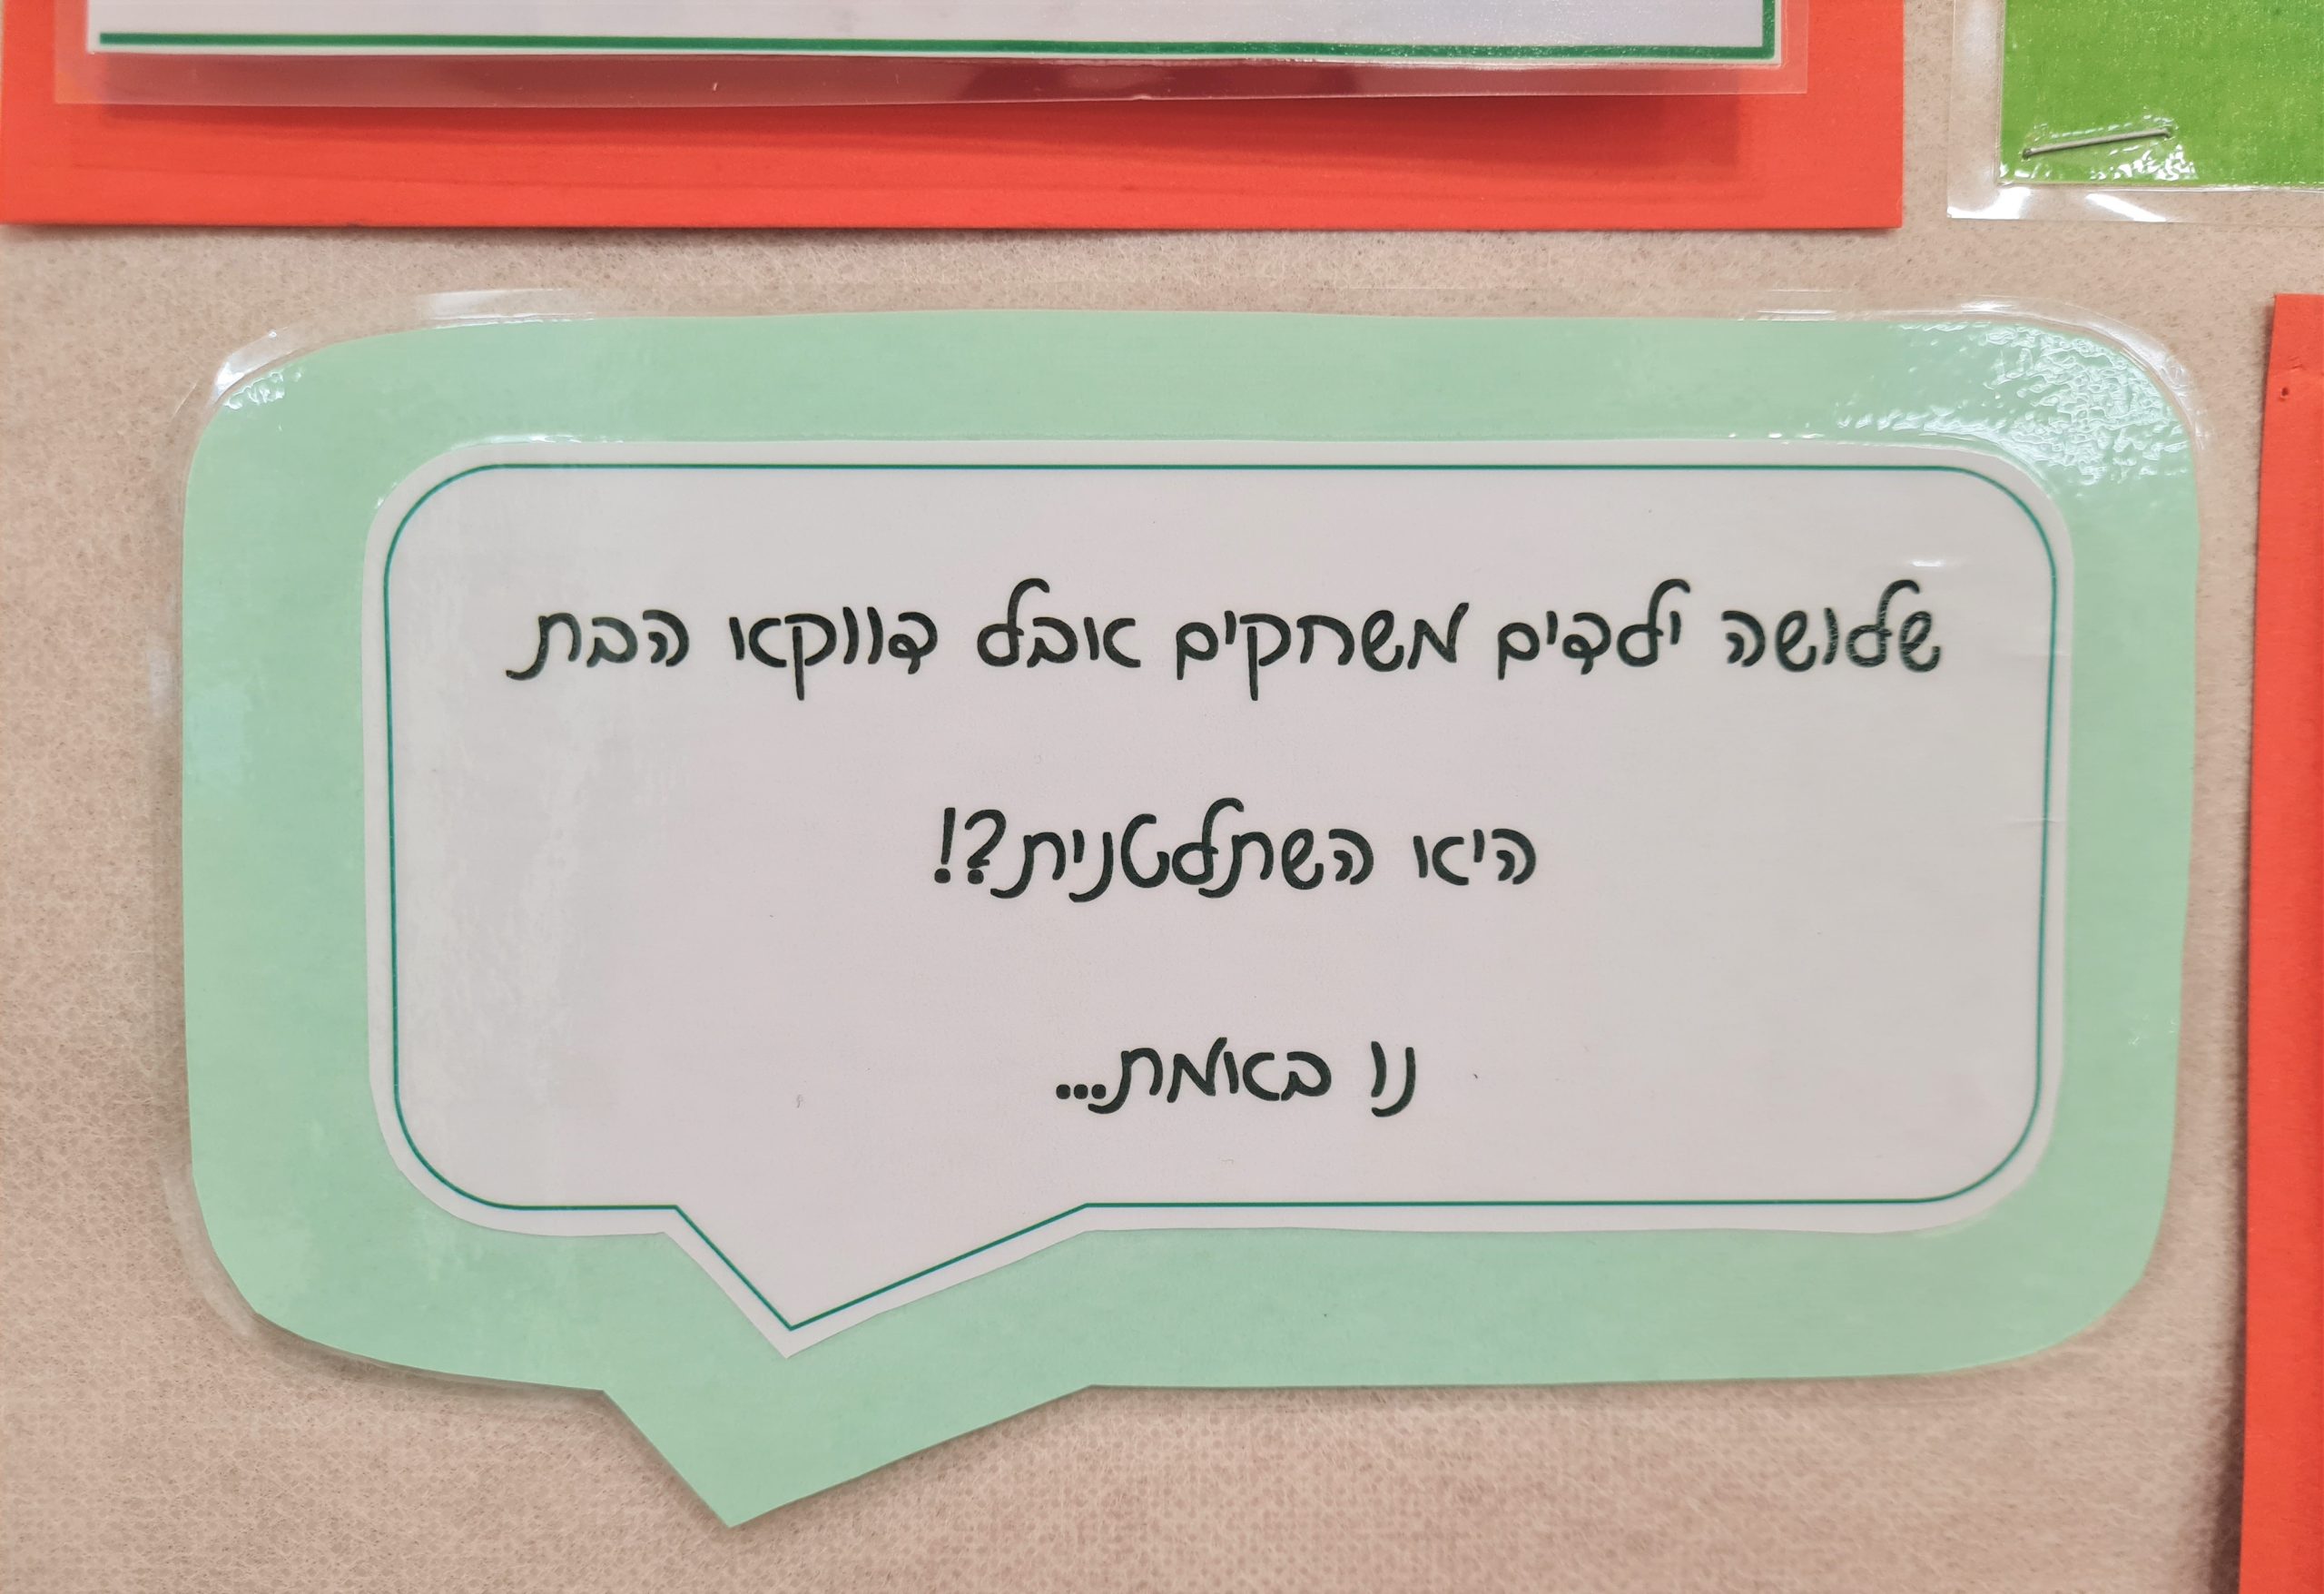 שלושה ילדים משחקים אבל דווקא הבת
היא השתלטנית?!
נו באמת...